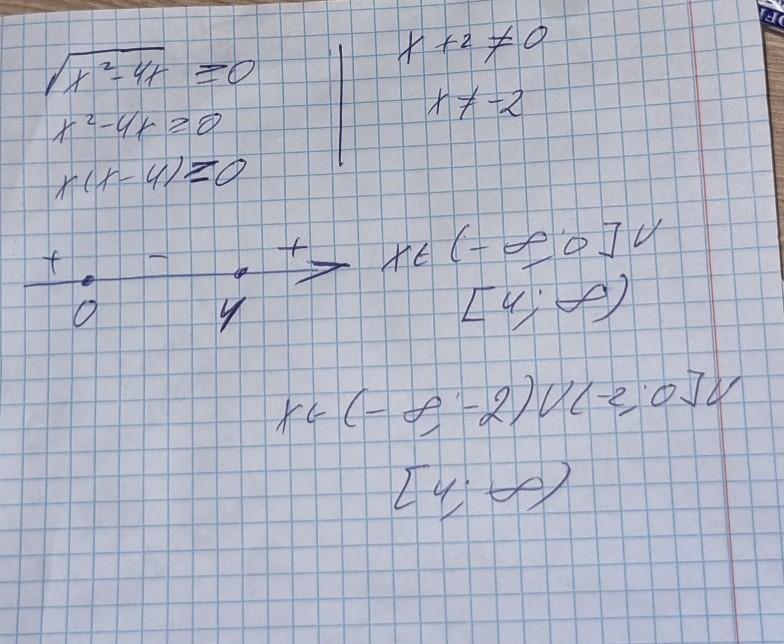 √(x²-4x) ≥0
x²-4x≥0
x(x-4)≥0
x+2≠0
x≠-2
+ - +
0 4
x∈(-∞;0]∪
[4;∞)
x∈(-∞;-2)∪(-2;0]∪
[4;∞)